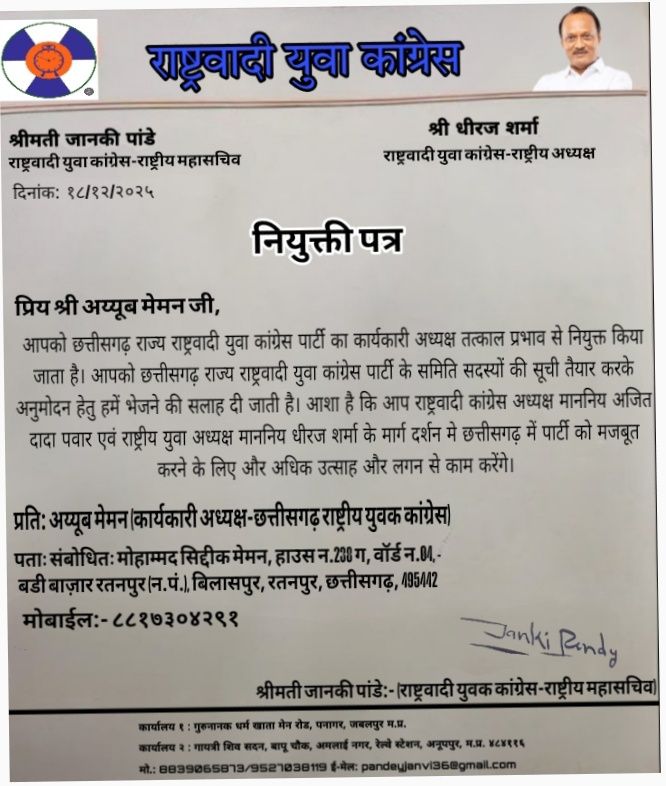 राष्ट्रवादी युवा कांग्रेस
श्रीमती जानकी पांडे
राष्ट्रवादी युवा कांग्रेस-राष्ट्रीय महासचिव
श्री धीरज शर्मा
राष्ट्रवादी युवा कांग्रेस-राष्ट्रीय अध्यक्ष
दिनांक: १८/१२/२०२५
नियुक्ती पत्र
प्रिय श्री अय्यूब मेमन जी,
आपको छत्तीसगढ़ राज्य राष्ट्रवादी युवा कांग्रेस पार्टी का कार्यकारी अध्यक्ष तत्काल प्रभाव से नियुक्त किया
जाता है। आपको छत्तीसगढ़ राज्य राष्ट्रवादी युवा कांग्रेस पार्टी के समिति सदस्यों की सूची तैयार करके
अनुमोदन हेतु हमें भेजने की सलाह दी जाती है। आशा है कि आप राष्ट्रवादी कांग्रेस अध्यक्ष माननिय अजित
दादा पवार एवं राष्ट्रीय युवा अध्यक्ष माननिय धीरज शर्मा के मार्ग दर्शन मे छत्तीसगढ़ में पार्टी को मजबूत
करने के लिए और अधिक उत्साह और लगन से काम करेंगे।
प्रति: अय्यूब मेमन (कार्यकारी अध्यक्ष-छत्तीसगढ़ राष्ट्रीय युवक कांग्रेस)
पताः संबोधितः मोहाम्मद सिद्दीक मेमन, हाउस न.238 ग, वॉर्ड न.04,-
बडी बाज़ार रतनपुर (न.पं.), बिलासपुर, रतनपुर, छत्तीसगढ़, 495442
मोबाईल:- ८८१७३०४२९१
Janki Pandy
श्रीमती जानकी पांडे:- (राष्ट्रवादी युवक कांग्रेस-राष्ट्रीय महासचिव)
कार्यालय १ : गुरुनानक धर्म खाता मेन रोड, पनागर, जबलपुर म.प्र.
कार्यालय २ : गायत्री शिव सदन, बापू चौक, अमलाई नगर, रेल्वे स्टेशन, अनूपपुर, म.प्र. ४८४११६
मो.: 8839065873/9527038119 ई-मेल: pandeyjanvi36@gmail.com